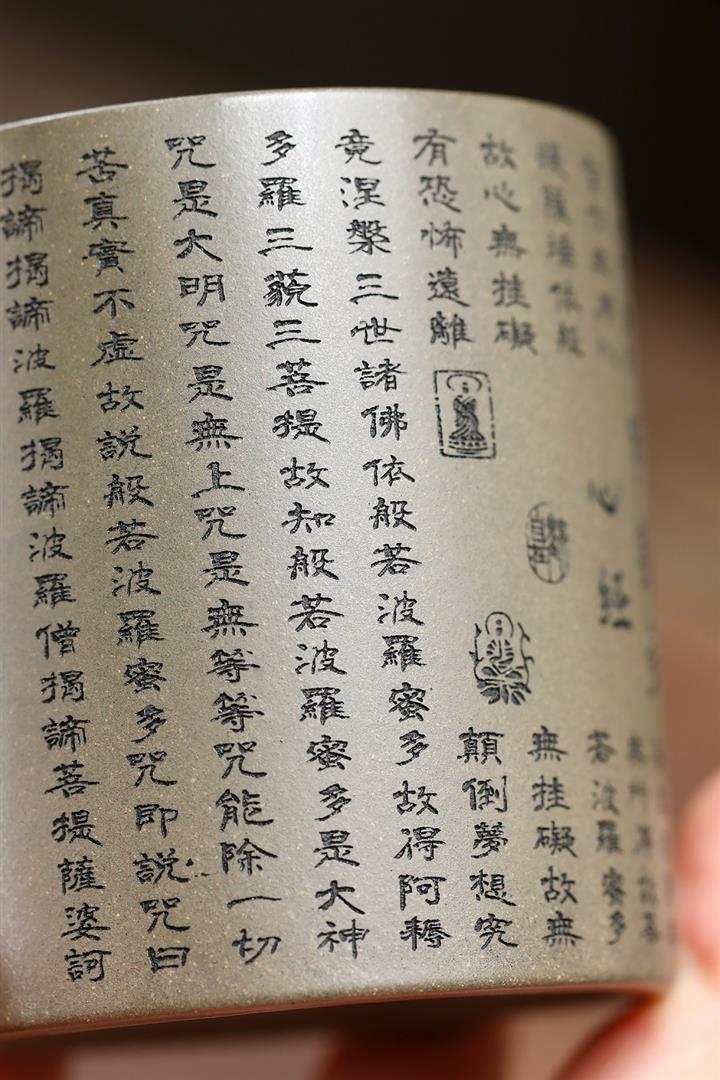 提薩埵依般
若波羅蜜多
故心無挂礙
無挂礙故無
有恐怖遠離
顛倒夢想究
心經
自在
竟涅槃三世諸佛依般若波羅蜜多故得阿耨
多羅三藐三菩提故知般若波羅蜜多是大神
咒是大明咒是無上咒是無等等咒能除一切
苦真實不虛故說般若波羅蜜多咒即說咒曰
揭諦揭諦波羅揭諦波羅僧揭諦菩提薩婆訶